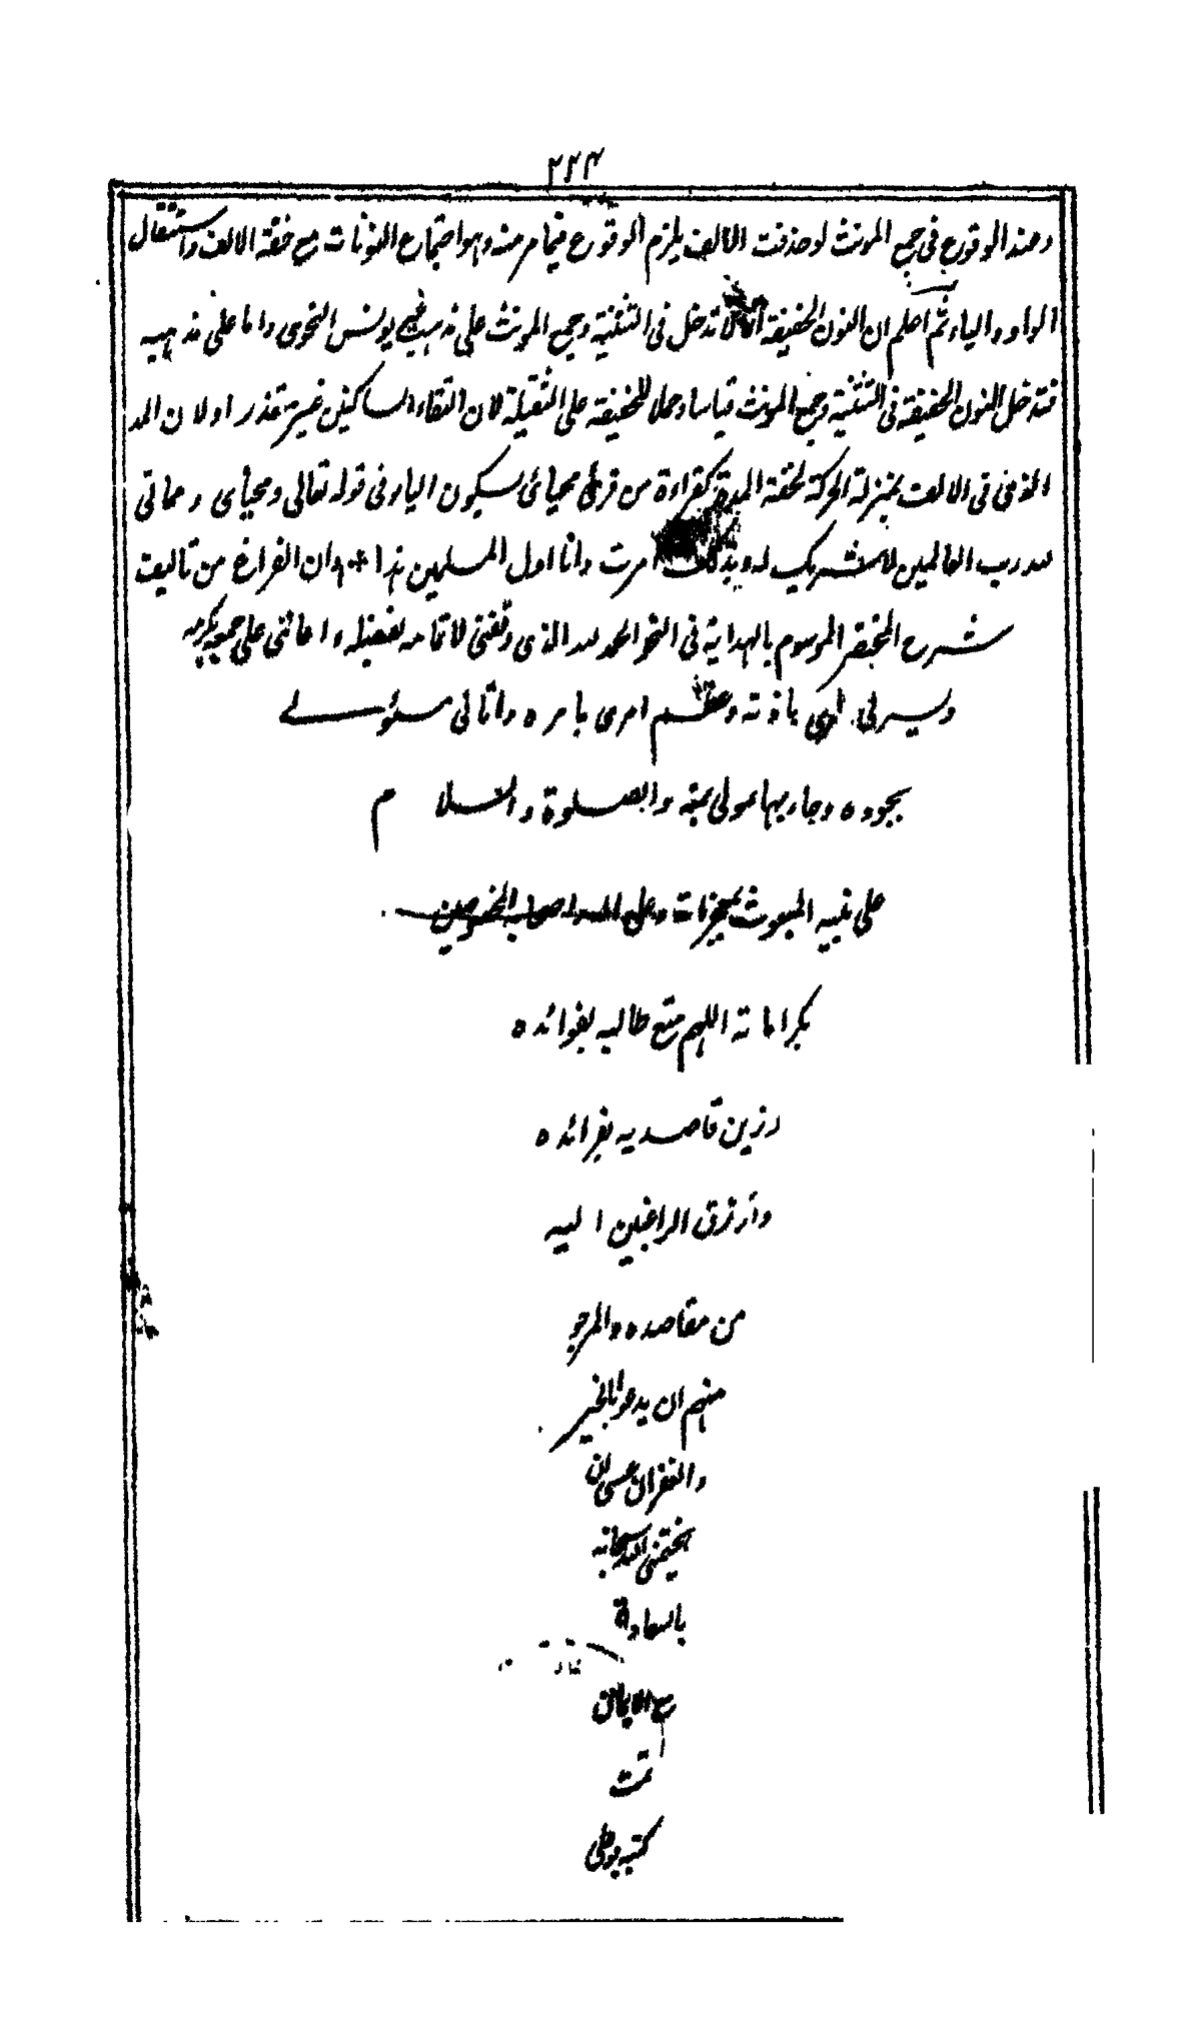 ٢٢٤
وعند الوقوع فى جمع المونث لو حذفت الالف يلزم الوقوع فيما مر منه وهو اجتماع النونات مع خفة الالف واستثقال
الواو والياء ثم اعلم ان النون الخفيفة لا تدخل فى التثنية وجمع المونث على مذهب غير يونس النحوى واما على مذهبه
فتدخل النون الخفيفة فى التثنية وجمع المونث قياسا وحملا للخفيفة على الثقيلة لان التقاء الساكنين غير متعذر اولا ن المد
الذى فى الالف بمنزلة الحركة لخفة المدة كقراءة من قرأ محياى بسكون الياء فى قوله تعالى ومحياى ومماتى
لله رب العالمين لا شريك له وبذلك امرت وانا اول المسلمين هذا اوان الفراغ من تاليف
شرح المختصر الموسوم بالهداية فى النحو الحمد لله الذى وفقنى لاتمامه بفضله واعاننى على جمعه بكرمه
ويسر لى باذنه وعظم امرى بامره واتانى مسئولى
بجوده وجاء بها مولى بمنه والصلوة والسلام
على نبيه المبعوث بمعجزات وعلى اله واصحابه المخصوصين
بكراماته اللهم متع طالبيه بفوائده
وزين قاصديه بفرائده
وارزق الراغبين اليه
من مقاصده والمرجو
منهم ان يدعو بالخير
والغفران عسى ان
يختمنى الله سبحانه
بالسعادة
مع الايمان
تمت
كتبه